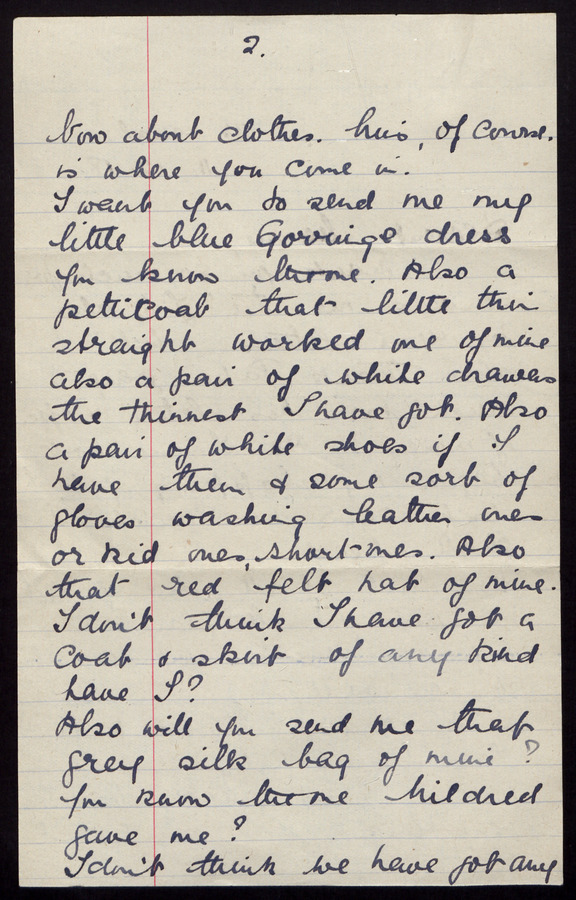 2.
Now about clothes. This, of course.
is where you come in.
I want you to send me my
little blue Gorringe dress
you know the one. Also a
petticoat that little thin
straight worked one of mine
also a pair of white drawers
the thinnest I have got. Also
a pair of white shoes if I
have them & some sort of
gloves washing leather ones
or kid ones, short ones. Also
that red felt hat of mine.
I don't think I have got a
coat & skirt of any kind
have I?
Also will you send me that
grey silk bag of mine?
You know the one Mildred
gave me?
I don't think we have got any